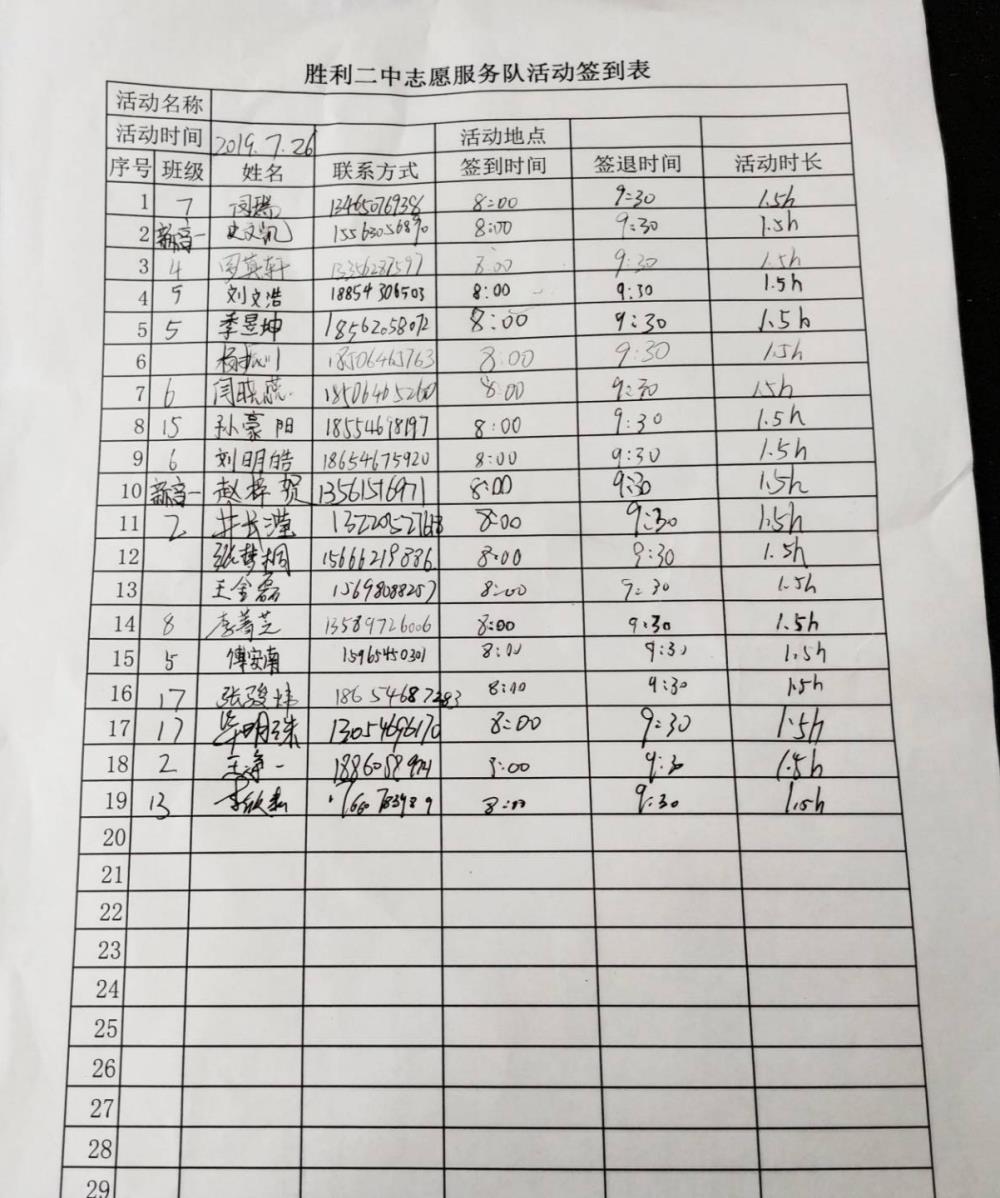 胜利二中志愿服务队活动签到表
活动名称
活动时间 2019.7.26 活动地点
序号 班级 姓名 联系方式 签到时间 签退时间 活动时长
1 7 闵瑞 13465076938 8:00 9:30 1.5h
2 新高一 史文凯 15563056890 8:00 9:30 1.5h
3 4 13356287597 8:00 9:30 1.5h
4 5 刘文浩 18854306503 8:00 9:30 1.5h
5 5 季昱坤 18562058072 8:00 9:30 1.5h
6 杨振川 18506465763 8:00 9:30 1.5h
7 6 18506465260 8:00 9:30 1.5h
8 15 孙豪阳 18554698197 8:00 9:30 1.5h
9 6 刘明皓 18654675920 8:00 9:30 1.5h
10 新高一 赵梓贺 13561516971 8:00 9:30 1.5h
11 2 8:00 9:30 1.5h
12 张梦桐 15666219886 8:00 9:30 1.5h
13 王金磊 15698088257 8:00 9:30 1.5h
14 8 李菁芝 13589726006 8:00 9:30 1.5h
15 5 傅安南 15965450301 8:00 9:30 1.5h
16 17 8:00 9:30 1.5h
17 17 毕明珠 13054696170 8:00 9:30 1.5h
18 2 8:00 9:30 1.5h
19 13 8:00 9:30 1.5h
20
21
22
23
24
25
26
27
28
29